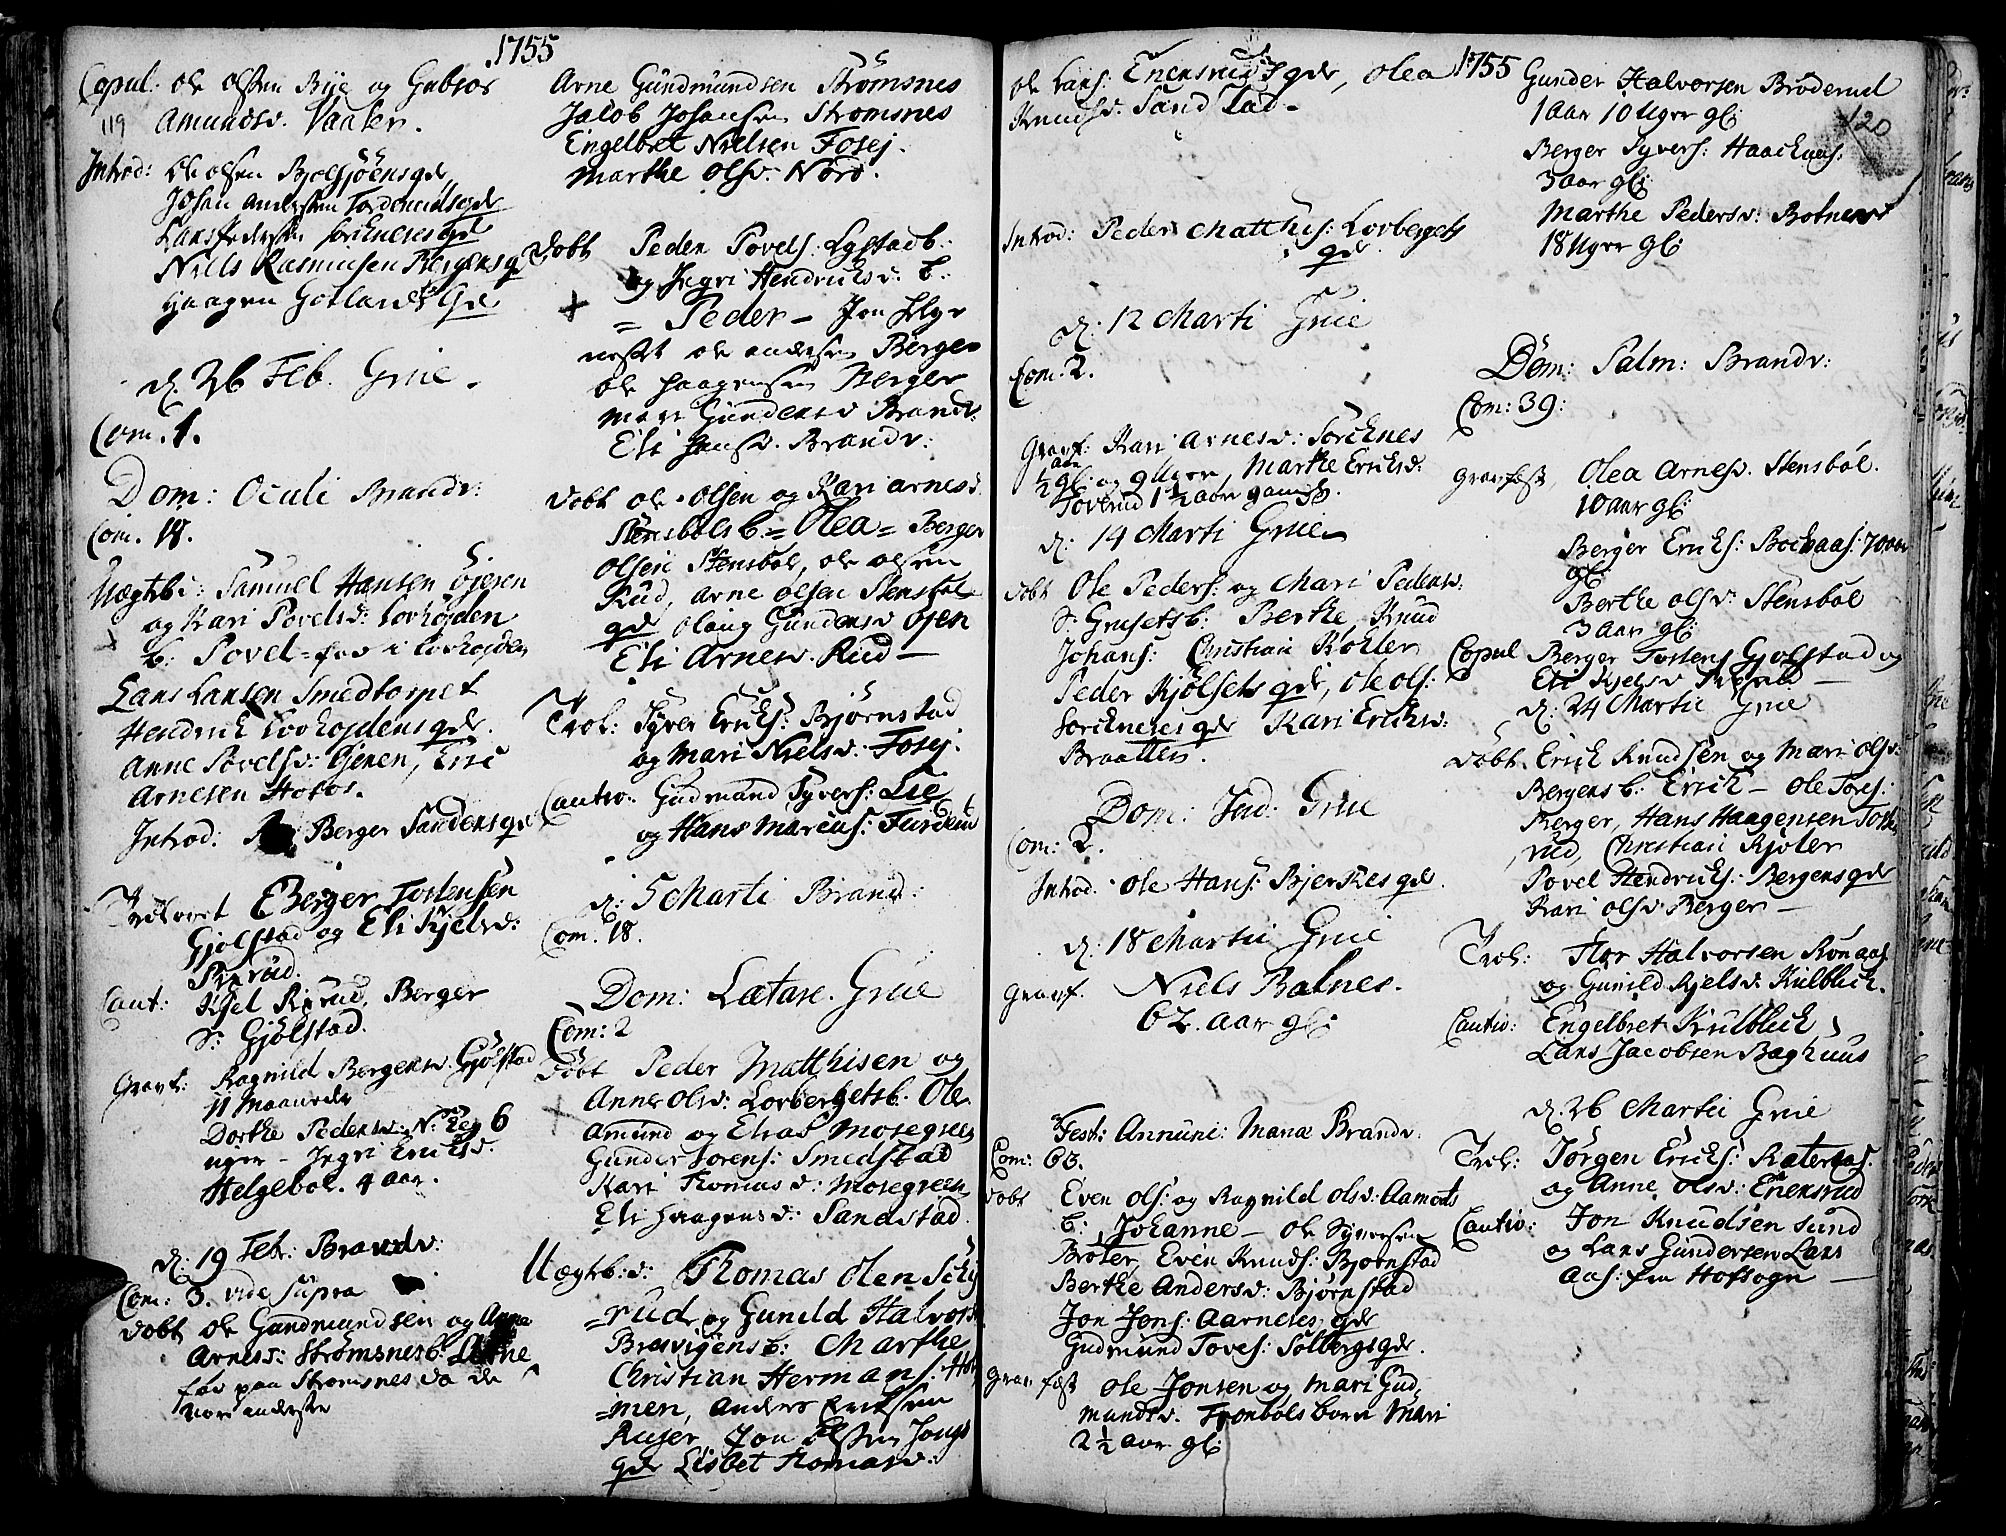 1755
Copul: ole olsen Bye og
119
Amundsd. Vaaler.
Introd: Ole olsen Bjølsjøens qde
Johan andersen
Lars Pedersen Sorknesqde
Niels Rasmusen Bergens q
Haagen
d. 26 Feb. Grue.
Com. 1.
Dom: Oculi Brandv:
Com. 18.
Uægtb: Samuel Hansen S. Øjeren
og Kari Povelsd: Lovhøjden
b: Povel = født i Lovhøjden
Lars Larsen Smedtorpet
Hendrich Lovhøjdens qde
Anne Povelsd: Øjeren, Eric
Arnesen Hofos.
Introd: Berger Sandens qde
Trolovet Berger Tostensen
Gjølstad og Eli Kjelsd:
Ryrud.
Caut: Kjel Ryrud, Berger
S: Gjølstad.
Gravf: Ragnild Bergersd. Gjølstad
11 Maaneder
Dorthe Pedersd. N: Eeg 6
uger - Ingri Ericksd.
Helgeboe. 4 aar.
d: 19 Feb: Brandv:
Com: 3. vide supra
Døbt ole Gundmundsen og Anna
Arnesd: Strømsnes b:
fød paa Strømsnes da de
vare
Arne Gundmundsen Strømsnes
Jacob Johansen Strømsnes
Engelbret Nielsen Fosej.
Marthe olsd: Nord.
Døbt Peder Povels: Lystad b:
og Ingri Hendrichsd: b:
= Peder - Jon
ole andersen Berger
ole Haagensen Berger
Mari Gundersd Brandv:
Eli Hansd. Brandv:
Døbt ole olsen og Kari arnesd
Stensbøls b. = Olea = Berger
olsen Stensbøl, ole olsen
Rud, arne olsen Stensbøl
qde olaug Gundersd Øjen
Eli Arnesd. Rud -
Trol: Syver Ericks: Bjørnstad
og Mari Nielsd: Fosej.
Cautio: Gudmund Syvers: Lie
og Hans Marcus:
d: 5 Marti Brandv:
Com. 18.
Dom: Lætare. Grue
Com: 2
Døbt Peder Matthisen og
Anne olsd: Lorbergets b. Ole
Amund og Elias Mosegreen
Gunder Sørens: Smedstad
Kari Thomasd: Mosegreen
Eli Haagensd: Sandstad
Uægtb:d: Thomas olsen
=rud og Gunild Halvorsd
b: Marthe
Christian Hermans: Hol
=men, anders Ericksen
Rusjer, Jon olsen
qde Lisbet Thomasd:
1755
ole Lars: Enensrud qde, Olea
Knudsd. Sandstad -
Introd: Peder Matthis: Lorbergets
qde
d: 12 Marti Grue
Com. 2.
Gravf: Kari arnesd: Sorcknes
½ aar gl: og 9 uger, Marthe Ericksd.
1 ½ aar gammel.
d: 14 Marti Grue
Døbt Ole Peders: og Mari Pedersd:
S: Grusets b. Berthe, Knud
Johans: Christian Køhler
Peder Kjølsets qde, ole ols:
Sorcknes qde Kari Ericksd:
Braatten.
Dom: Jud: Grue
Com: 2.
Introd. ole Hans: Bjerkes qde.
d: 18 Martii Grue
Gravf. Niels Balnes.
62. aar gl:
Fest: Annunc: Mariæ Brandv.
Com: 63.
Døbt Even ols: og Ragnild olsd: Aamots
b: Johanne - ole Syversen
Brøter, Even Knuds: Bjørnstad
Berthe Andersd: Bjørnstad
Jon Jons: Aarneses qde
Gudmund Toves: Solbergs qde.
Grav fæst ole Jonsen og Mari Gud
mundsd. børn Mari
2 ½ aar gl:
Gunder Halvorsen Brøderud
1 aar 10 Uger gl:
120
Berger Syvers: Haacknes:
3 aar gl:
Marthe Pedersd: Botner
18 Uger gl:
Dom: Palm: Brandv:
Com: 39:
Gravfæst, Olea Arnesd. Stensbøl.
10 aar gl:
Berger Ericks: 70 aar
gl:
Berthe olsd: Stensbøl
3 aar gl:
Copul Berger Tostens Gjølstad og
Eli Kjelsd Ryrud -
d: 24 Martii Grue
Døbt. Erick Knudsen og Mari olsd:
Bergens b: Erick - ole Tores:
Berger, Hans Haagensen
rud, Christian Kjøler
Povel Hendricks: Bergens qde
Kari olsd Berger -
Trol: Halvorsen Rønaas
og Gunild Kjelsd: Kulblick.
Cautio: Engelbret Kulblick
Lars Jacobsen Baghuus
d: 26 Martii Grue
Trol: Jørgen Ericks: Rateraas.
og Anne olsd: Enensrud
Cautio: Jon Knudsen Sund
og Lars Gundersen Lars
Aas: fra Hofsogn -